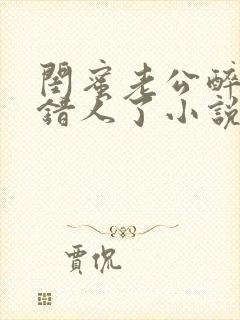 閨蜜老公醉
錯人了小說
賈侃